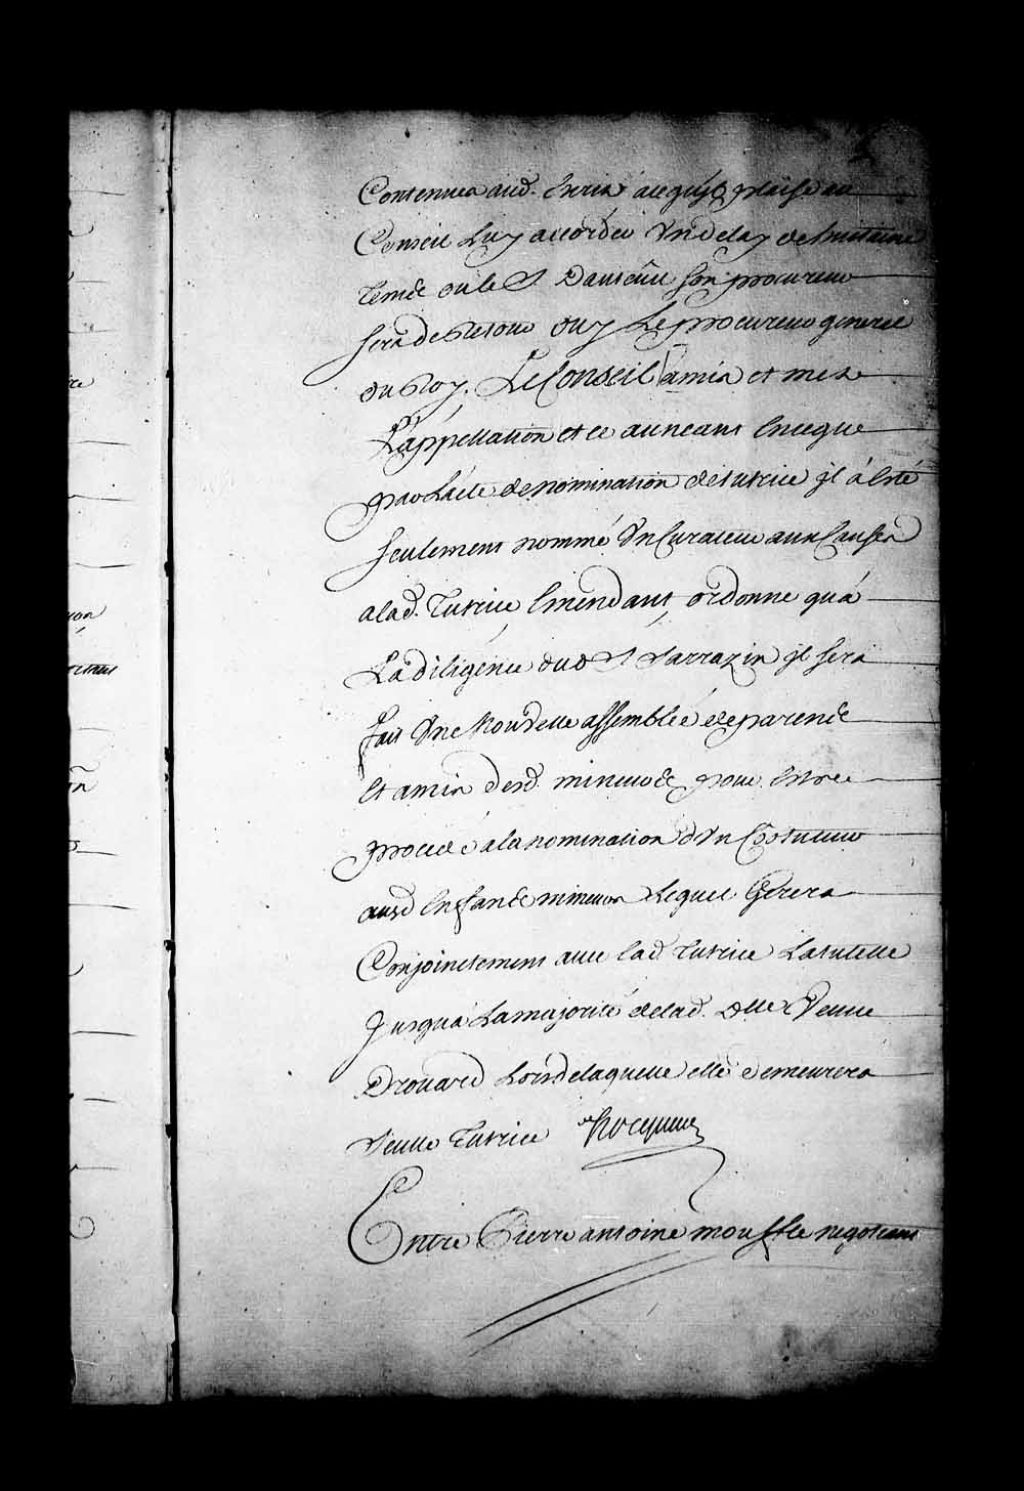 Contenues aud. Ecrit ace qu'jl plaise au
Conseil Luy accorder Un delay de huitaine
Temps ou le S. Dauseuil son procureur
sera de Retour ouy Le procureur general
du Roy. Le Conseil a mis et met
L'appellation et ce au neant En ce que
par L'acte de nomination de tutrice jl à Esté
seulement nommé Un Curateur aux Causes
a lad. Tutrice Emendant ordonne qu'á
La diligence dud S Sarrazin jl sera
fait Une Nouvelle assemblée de parents
Et amis desd. mineurs pour Estre
procedé a la nomination d'Un Cotuteur
ausd Enfants mineurs Lequel Gerera
Conjoinctement avec lad Tutrice La tutelle
Jusqu'a La majorité de lad. Dlle Veuve
Drouard Lors de laquelle elle demeurera
Seulle Tutrice Hocquart
Entre Pierre antoine mouffle negotiant